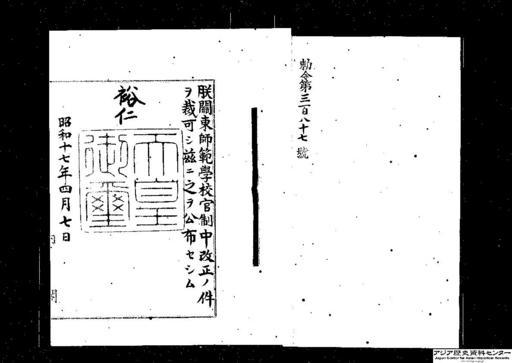 勅令第三百八十七號
朕關東師範學校官制中改正ノ件
ヲ裁可シ茲ニ之ヲ公布セシム
裕仁
天皇
御璽
昭和十七年四月七日
内閣
アジア歴史資料センター
Japan Center for Asian Historical Records